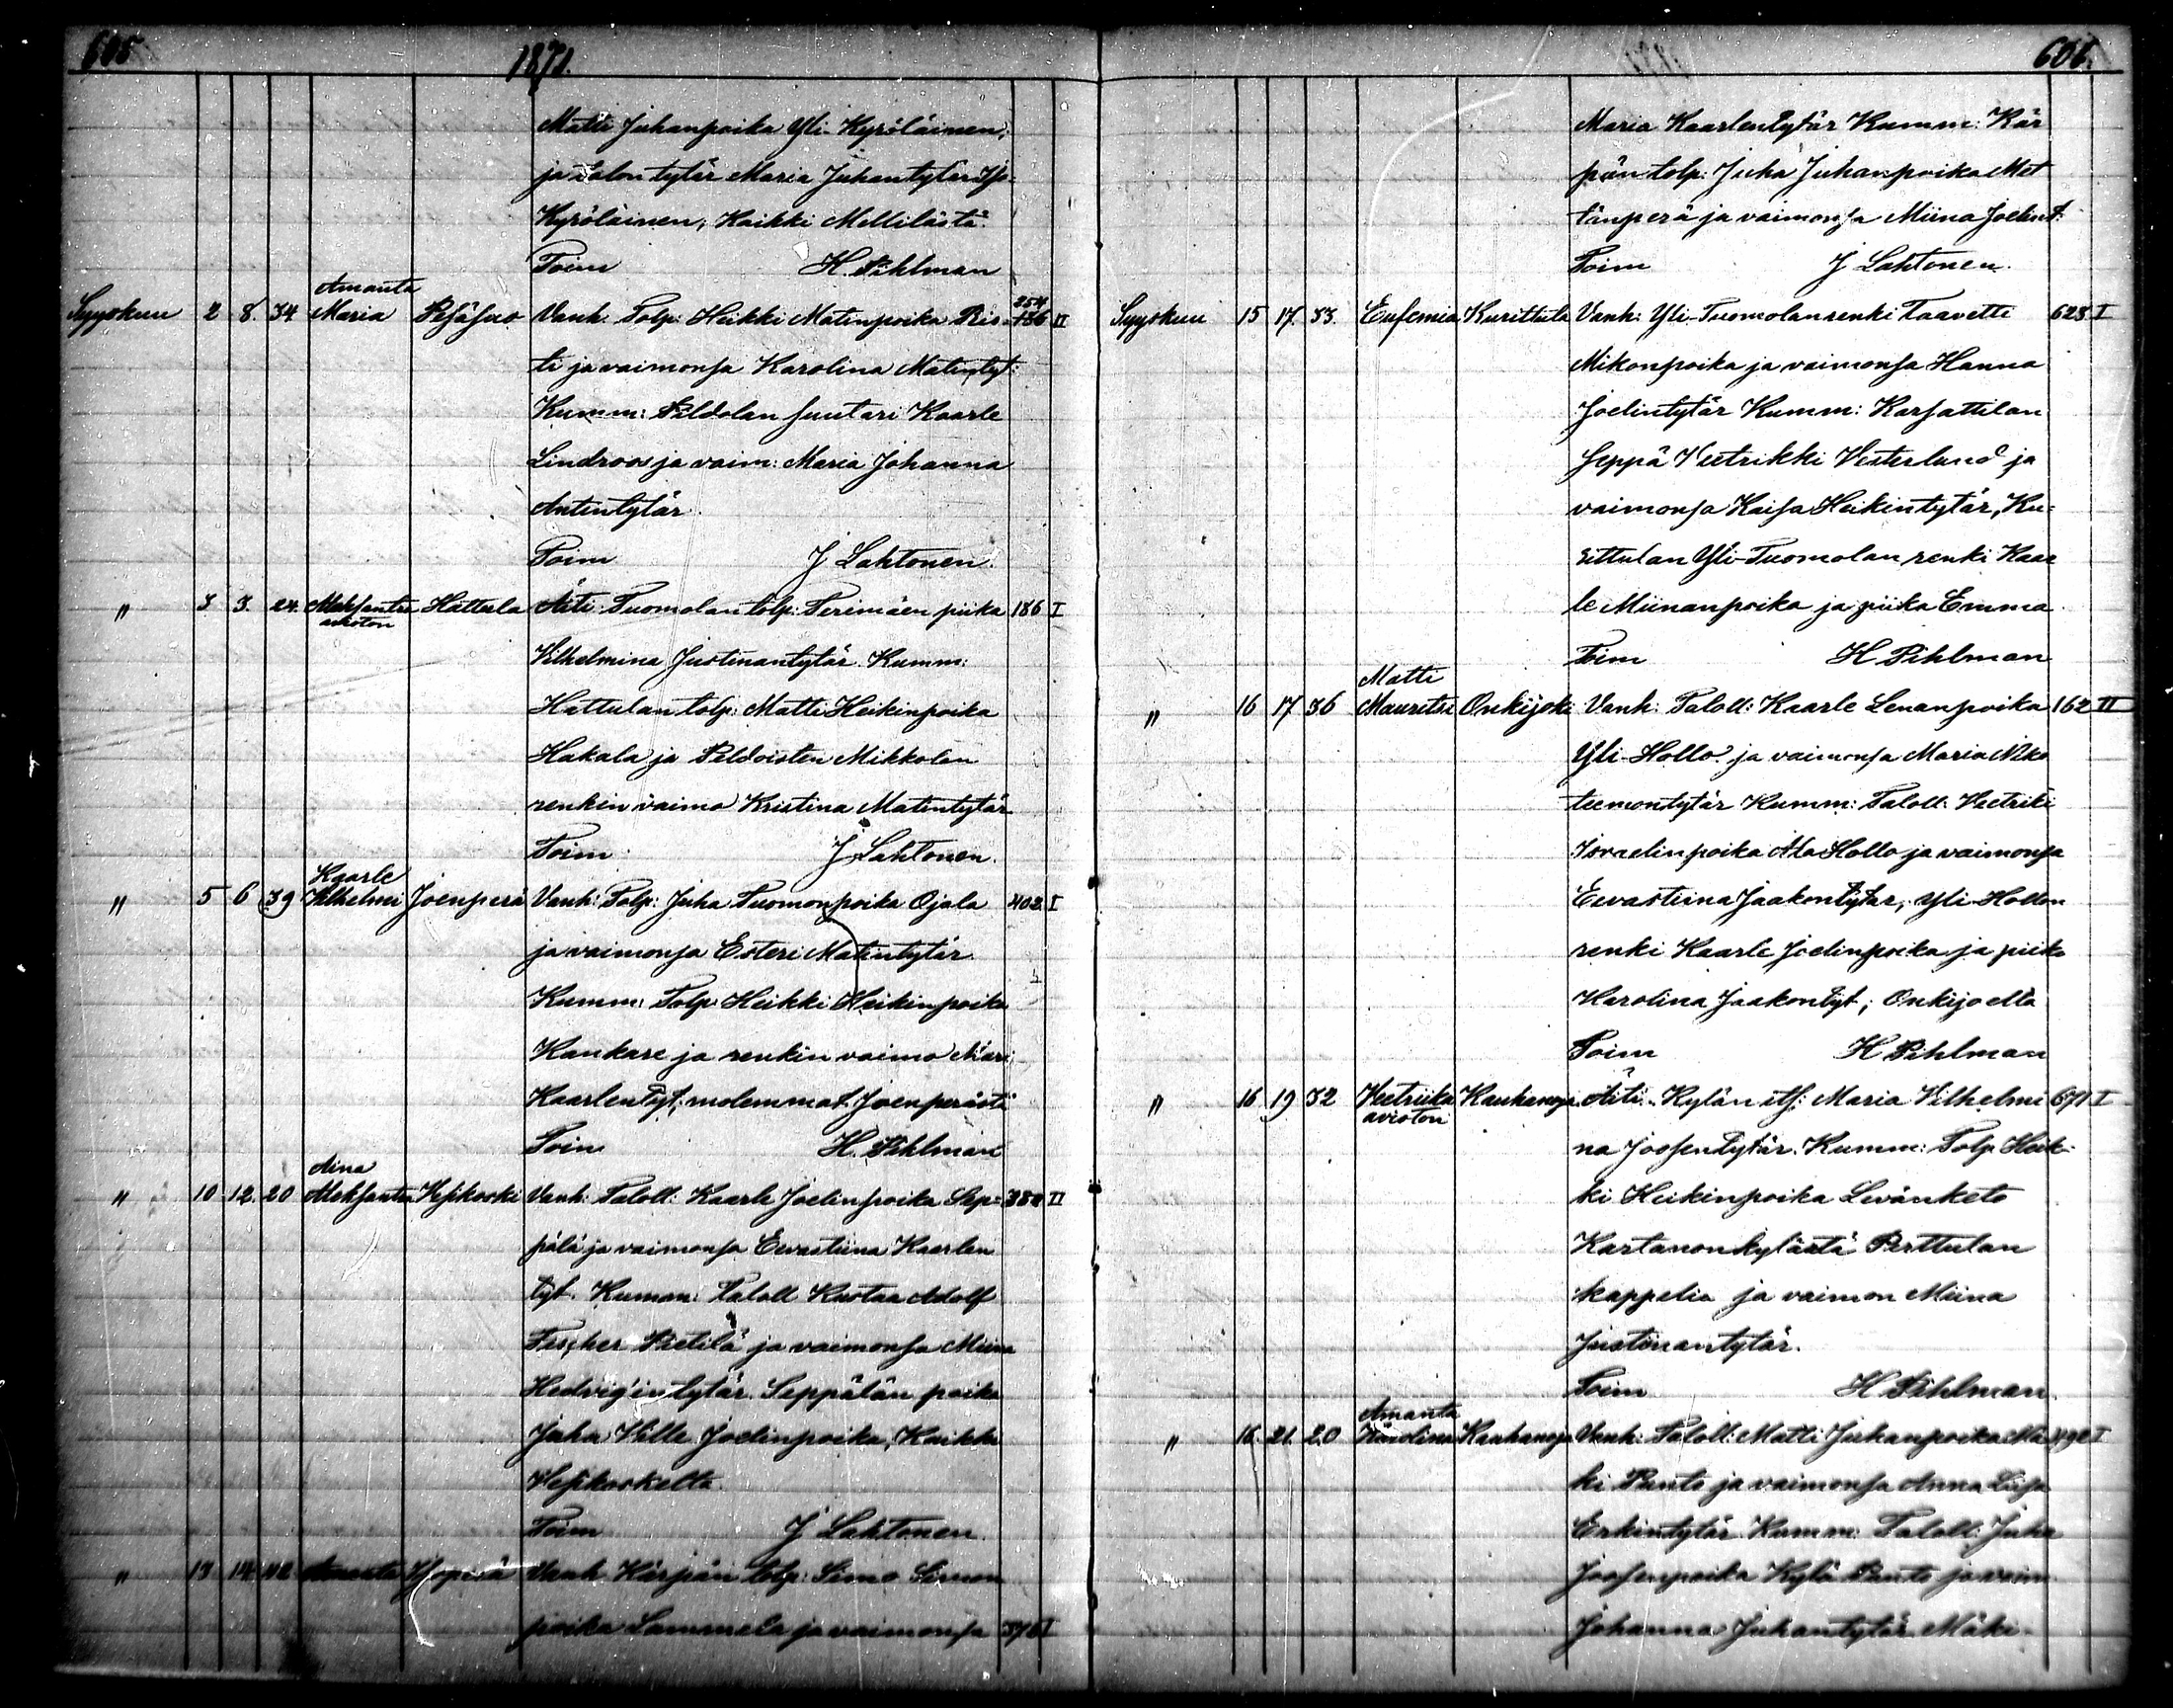 605
1871.
Matti Juhanpoika Yli Kyröläinen,
ja talon tytär Maria Juhantytär Iso-
Kyröläinen, Kaikki Mellilästä.
Toim H. Pihlman
Amanta
Syyskuu 2 8. 34 Maria Pesäsuo Vanh. Tolp: Heikki Matinpoika Ris- 254 186 II
ti ja vaimonsa Karolina Matintyt:
Kumm: Peldolan suutari Kaarle
Lindroos ja vaim: Maria Johanna
Antintytär.
Toim J Lahtonen.
" 3 3. 24 Aleksantra Hattula Äiti: Tuomolan tolp: Perimäen piika 186 I
avioton
Vilhelmina Justinantytär. Kumm:
Hattulan tolp: Matti Heikinpoika
Hakala ja Peldoisten Mikkolan
renkin vaimo Kristina Matintytär
Toim J. Lahtonen.
Kaarle
" 5 6 39 Vilhelmi Joenperä Vanh: Tolp: Juha Tuomonpoika Ojala 402 I
ja vaimonsa Esteri Matintytär
Kumm: Tolp: Heikki Heikinpoika
Kankare ja renkin vaimo Mari
Kaarlentyt; molemmat Joenperästä
Toim H. Pihlman
Aina
" 10 12. 20 Aleksantra Vesikoski Vanh: Taloll: Kaarle Joelinpoika Sep- 382 II
pälä ja vaimonsa Eevastiina Kaarlen
tyt. Kumm: Taloll Kustaa Adolf
Fischer Pietilä ja vaimonsa Miina
Hedvig'in tytär. Seppälän poika
Juha Ville Joelinpoika, Kaikki
Vesikoskelta.
Toim J Lahtonen.
" 13 14. 42 Amanta Isoperä Vanh. Kärpän tolp: Simo Simon
poika Lammela ja vaimonsa 376 I
606.
Maria Kaarlentytär Kumm: Kär
pän tolp: Juha Juhanpoika Met
tänperä ja vaimonsa Miina Joelint:
Toim J Lahtonen.
Syyskuu 15 17. 33. Eufemia Kurittula Vanh: Yli-Tuomolan renki Taavetti 628 I
Mikonpoika ja vaimonsa Hanna
Joelintytär Kumm: Karsattilan
seppä Veetrikki Vesterlund ja
vaimonsa Kaisa Heikintytär, Ku-
rittulan Yli-Tuomolan renki Kaar
le Miinanpoika ja piika Emma
Toim H Pihlman
Matti
" 16 17 36 Mauritsi Onkijoki Vanh: Taloll: Kaarle Lenanpoika 162 II
Yli-Hollo ja vaimonsa Maria Niko
teemontytär Kumm: Taloll: Veetriki
Israelinpoika Ala Hollo ja vaimonsa
Eevastiina Jaakontytär, Yli-Hollon
renki Kaarle Joelinpoika ja piika
Karolina Jaakontyt; Onkijoelta
Toim H Pihlman
" 16 19 32 Veetriika Kauhanoja Äiti: Kylän its: Maria Vilhelmi 671 I
avioton
na Joosentytär. Kumm: Tolp Heik-
ki Heikinpoika Levänketo
Kartanonkylästä Perttulan
kappelia ja vaimon Miina
Justinantytär.
Toim H Pihlman.
Amanta
" 16 21. 20 Karolina Kauhanoja Vanh: Taloll: Matti Juhanpoika Mä- 492 I
ki Punto ja vaimonsa Anna Liisa
Erkintytär. Kumm: Taloll: Juha
Joosenpoika Kylä Punto ja vaim
Johanna Juhantytär Mäki-